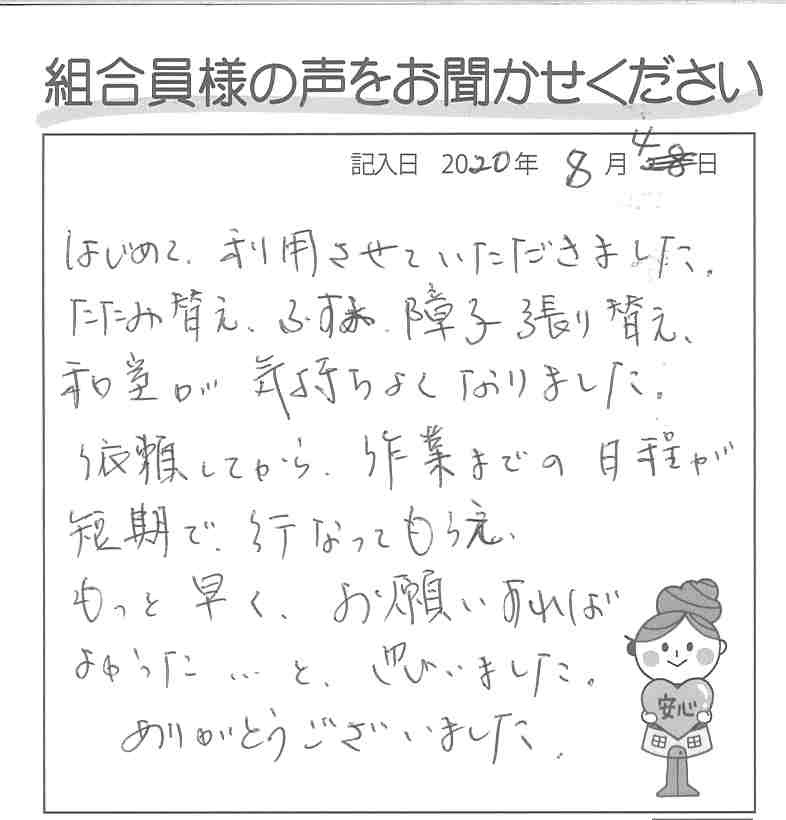 組合員様の声をお聞かせください
記入日 2020年 8月4日
はじめて、利用させていただきました。
たたみ替え、ふすま、障子張り替え、
和室が気持ちよくなりました。
依頼してから、作業までの日程が
短期で、行なってもらえ、
もっと早く、お願いすれば
よかった…と、思いました。
ありがとうございました。
安心